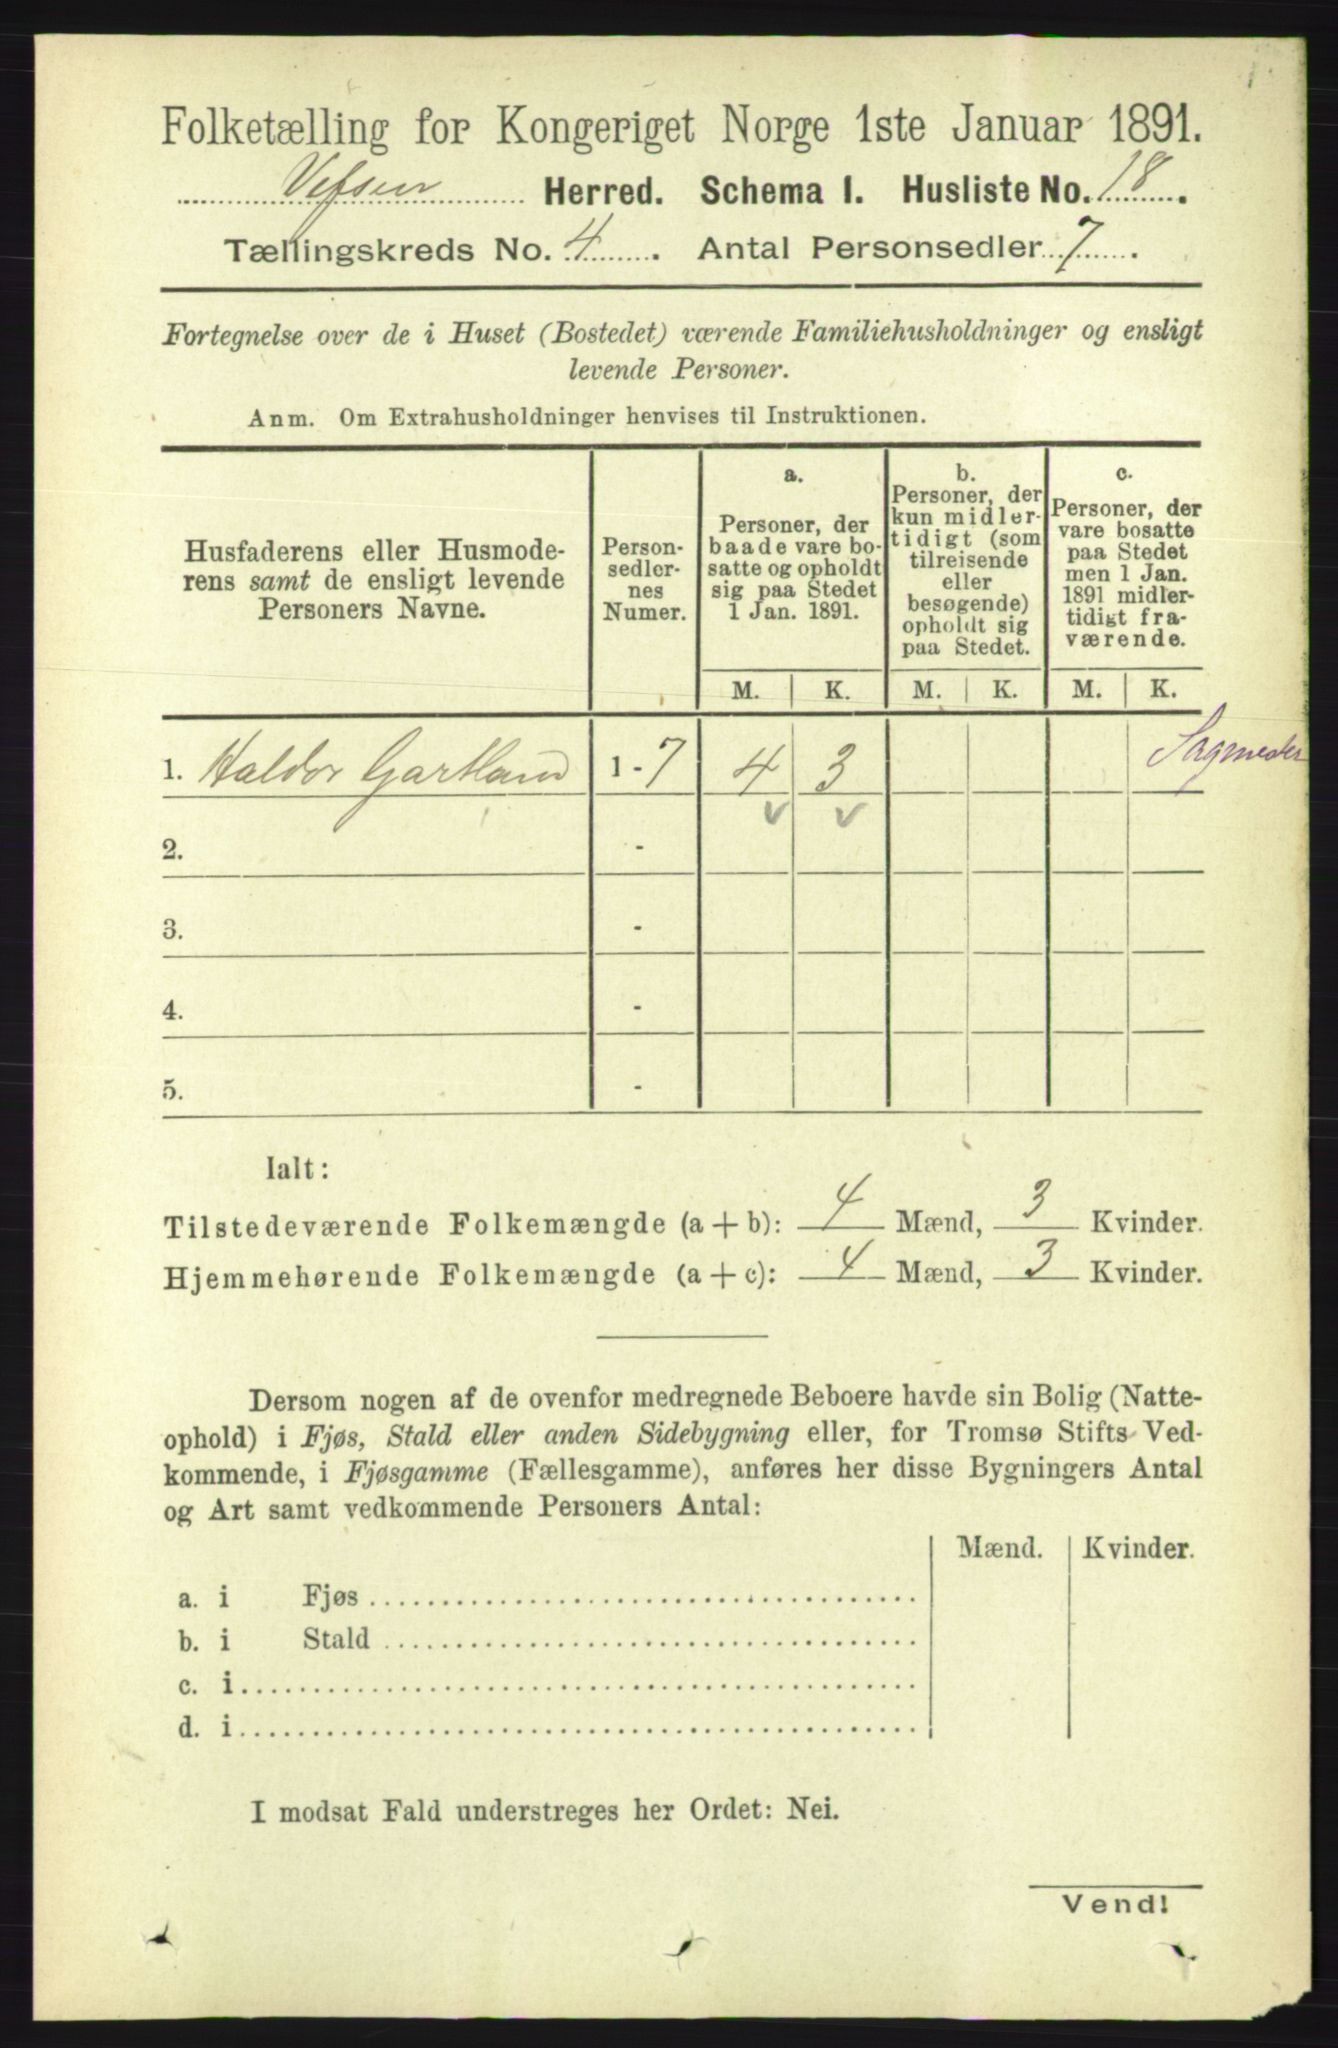 Folketælling for Kongeriget Norge 1ste Januar 1891.
Vefsen Herred. Schema I. Husliste No. 18.
Tællingskreds No. 4. Antal Personsedler 7.
Fortegnelse over de i Huset (Bostedet) værende Familiehusholdninger og ensligt
levende Personer.
Anm. Om Extrahusholdninger henvises til Instruktionen.
Husfaderens eller Husmode-
rens samt de ensligt levende
Personers Navne.
Person-
sedler-
nes
Numer.
a.
Personer, der
baade vare bo-
satte og opholdt
sig paa Stedet
1 Jan. 1891.
b.
Personer, der
kun midler-
tidigt (som
tilreisende
eller
besøgende)
opholdt sig
paa Stedet.
c.
Personer, der
vare bosatte
paa Stedet
men 1 Jan.
1891 midler-
tidigt fra-
værende.
M. K. M. K. M. K.
1. Haldor Gartland 1 - 7 4 3 Sagmester
2. -
3. -
4. -
5. -
Ialt:
Tilstedeværende Folkemængde (a + b): 4 Mænd, 3 Kvinder.
Hjemmehørende Folkemængde (a + c): 4 Mænd, 3 Kvinder.
Dersom nogen af de ovenfor medregnede Beboere havde sin Bolig (Natte-
ophold) i Fjøs, Stald eller anden Sidebygning eller, for Tromsø Stifts Ved-
kommende, i Fjøsgamme (Fællesgamme), anføres her disse Bygningers Antal
og Art samt vedkommende Personers Antal:
Mænd. Kvinder.
a. i Fjøs
b. i Stald
c. i
d. i
I modsat Fald understreges her Ordet: Nei.
Vend!